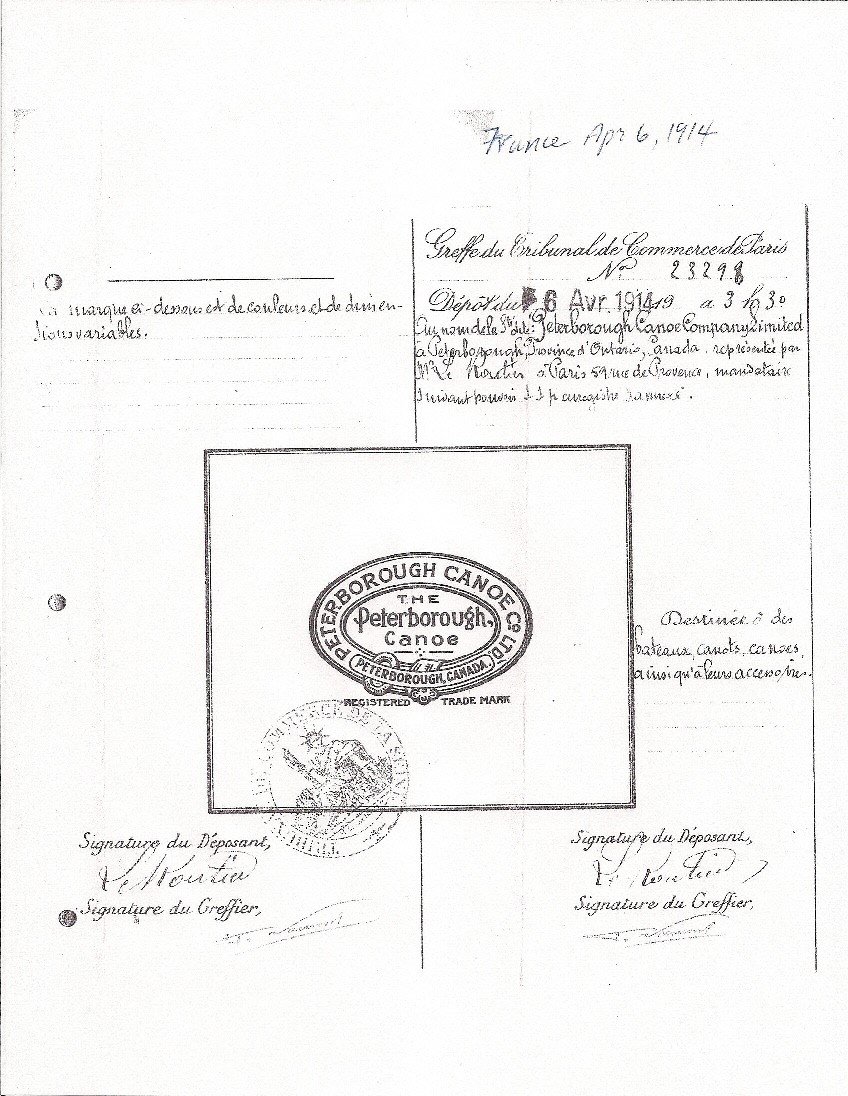 France Apr 6, 1914
Greffe du Tribunal de Commerce de Paris
No 23298
Dépôt du 6 Avr. 1914 19 a 3 h 30
La marque ci-dessous est de couleurs et de dimen-
sions variables.
Au nom de la Sté dite: Peterborough Canoe Company Limited
à Peterborough, Province d'Ontario, Canada, représentée par
Mr Le Moutier à Paris 59 rue de Provence, mandataire
suivant pouvoir S.S.P. enregistré
PETERBOROUGH CANOE CO. LTD.
THE
Peterborough
Canoe
PETERBOROUGH, CANADA.
REGISTERED TRADE MARK
Destinée à des
bateaux, canots, canoes,
ainsi qu'à leurs accessoires.
DE COMMERCE DE LA SEINE
Signature du Déposant,
Signature du Déposant,
Le Moutier
Le Moutier
Signature du Greffier,
Signature du Greffier,